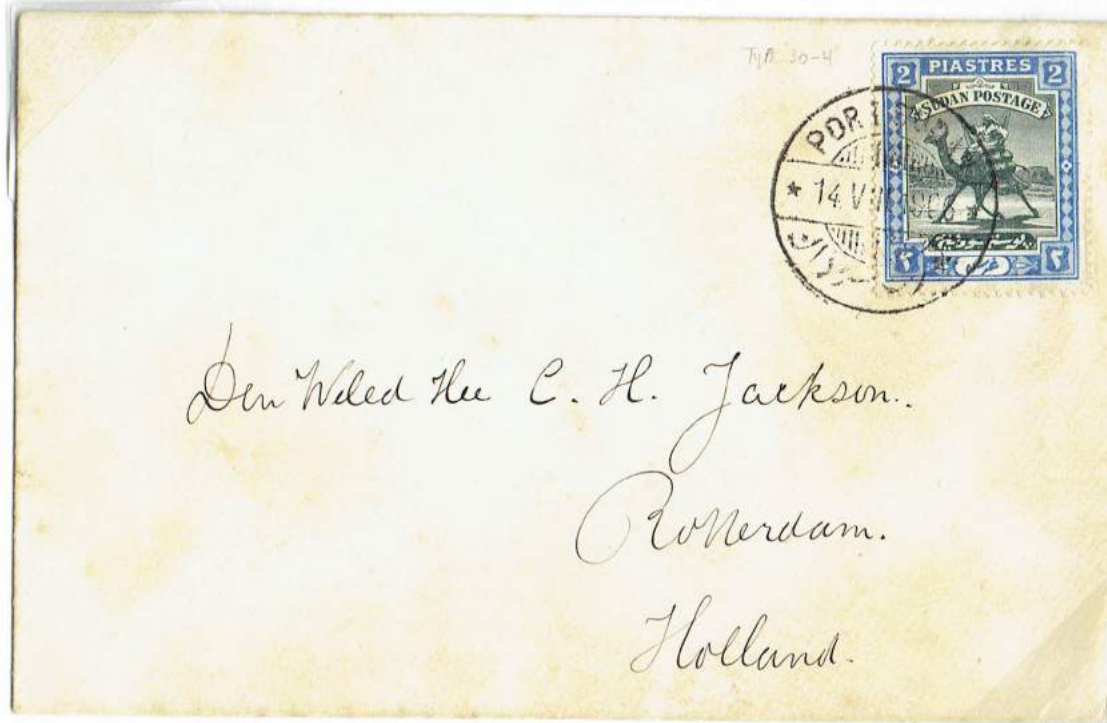 2 PIASTRES 2
SUDAN POSTAGE
PORT
14 V 190
٢ ٢
Den Weled Hee C. H. Jackson.
Rotterdam.
Holland.